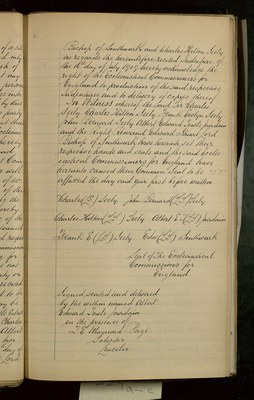 Bishop of Southwark and Charles Hilton Seely
as regards the hereinbefore recited Indenture of
the day of July 1909 hereby acknowledge the
right of the Ecclesiastical Commissioners for
England to production of the said respective
Indentures and to delivery of copies thereof
In Witness whereof the said Sir Charles
Seely Charles Hilton Seely Frank Evelyn Seely
John Bernard Seely Albert Edward
and the right reverend Edward Lord
Bishop of Southwark have hereunto set their
respective hands and seals and the said Eccles-
iastical Commissioners for England have
hereunto caused their Common Seal to be
affixed the day and year first before written
Charles Seely John Bernard Seely
Charles Hilton Seely Albert E.
Frank E. Seely Edw Southwark
Seal of the Ecclesiastical
Commissioners for
England
Signed sealed and delivered
by the within named Albert
Edward
in the presence of
Page
Solicitor